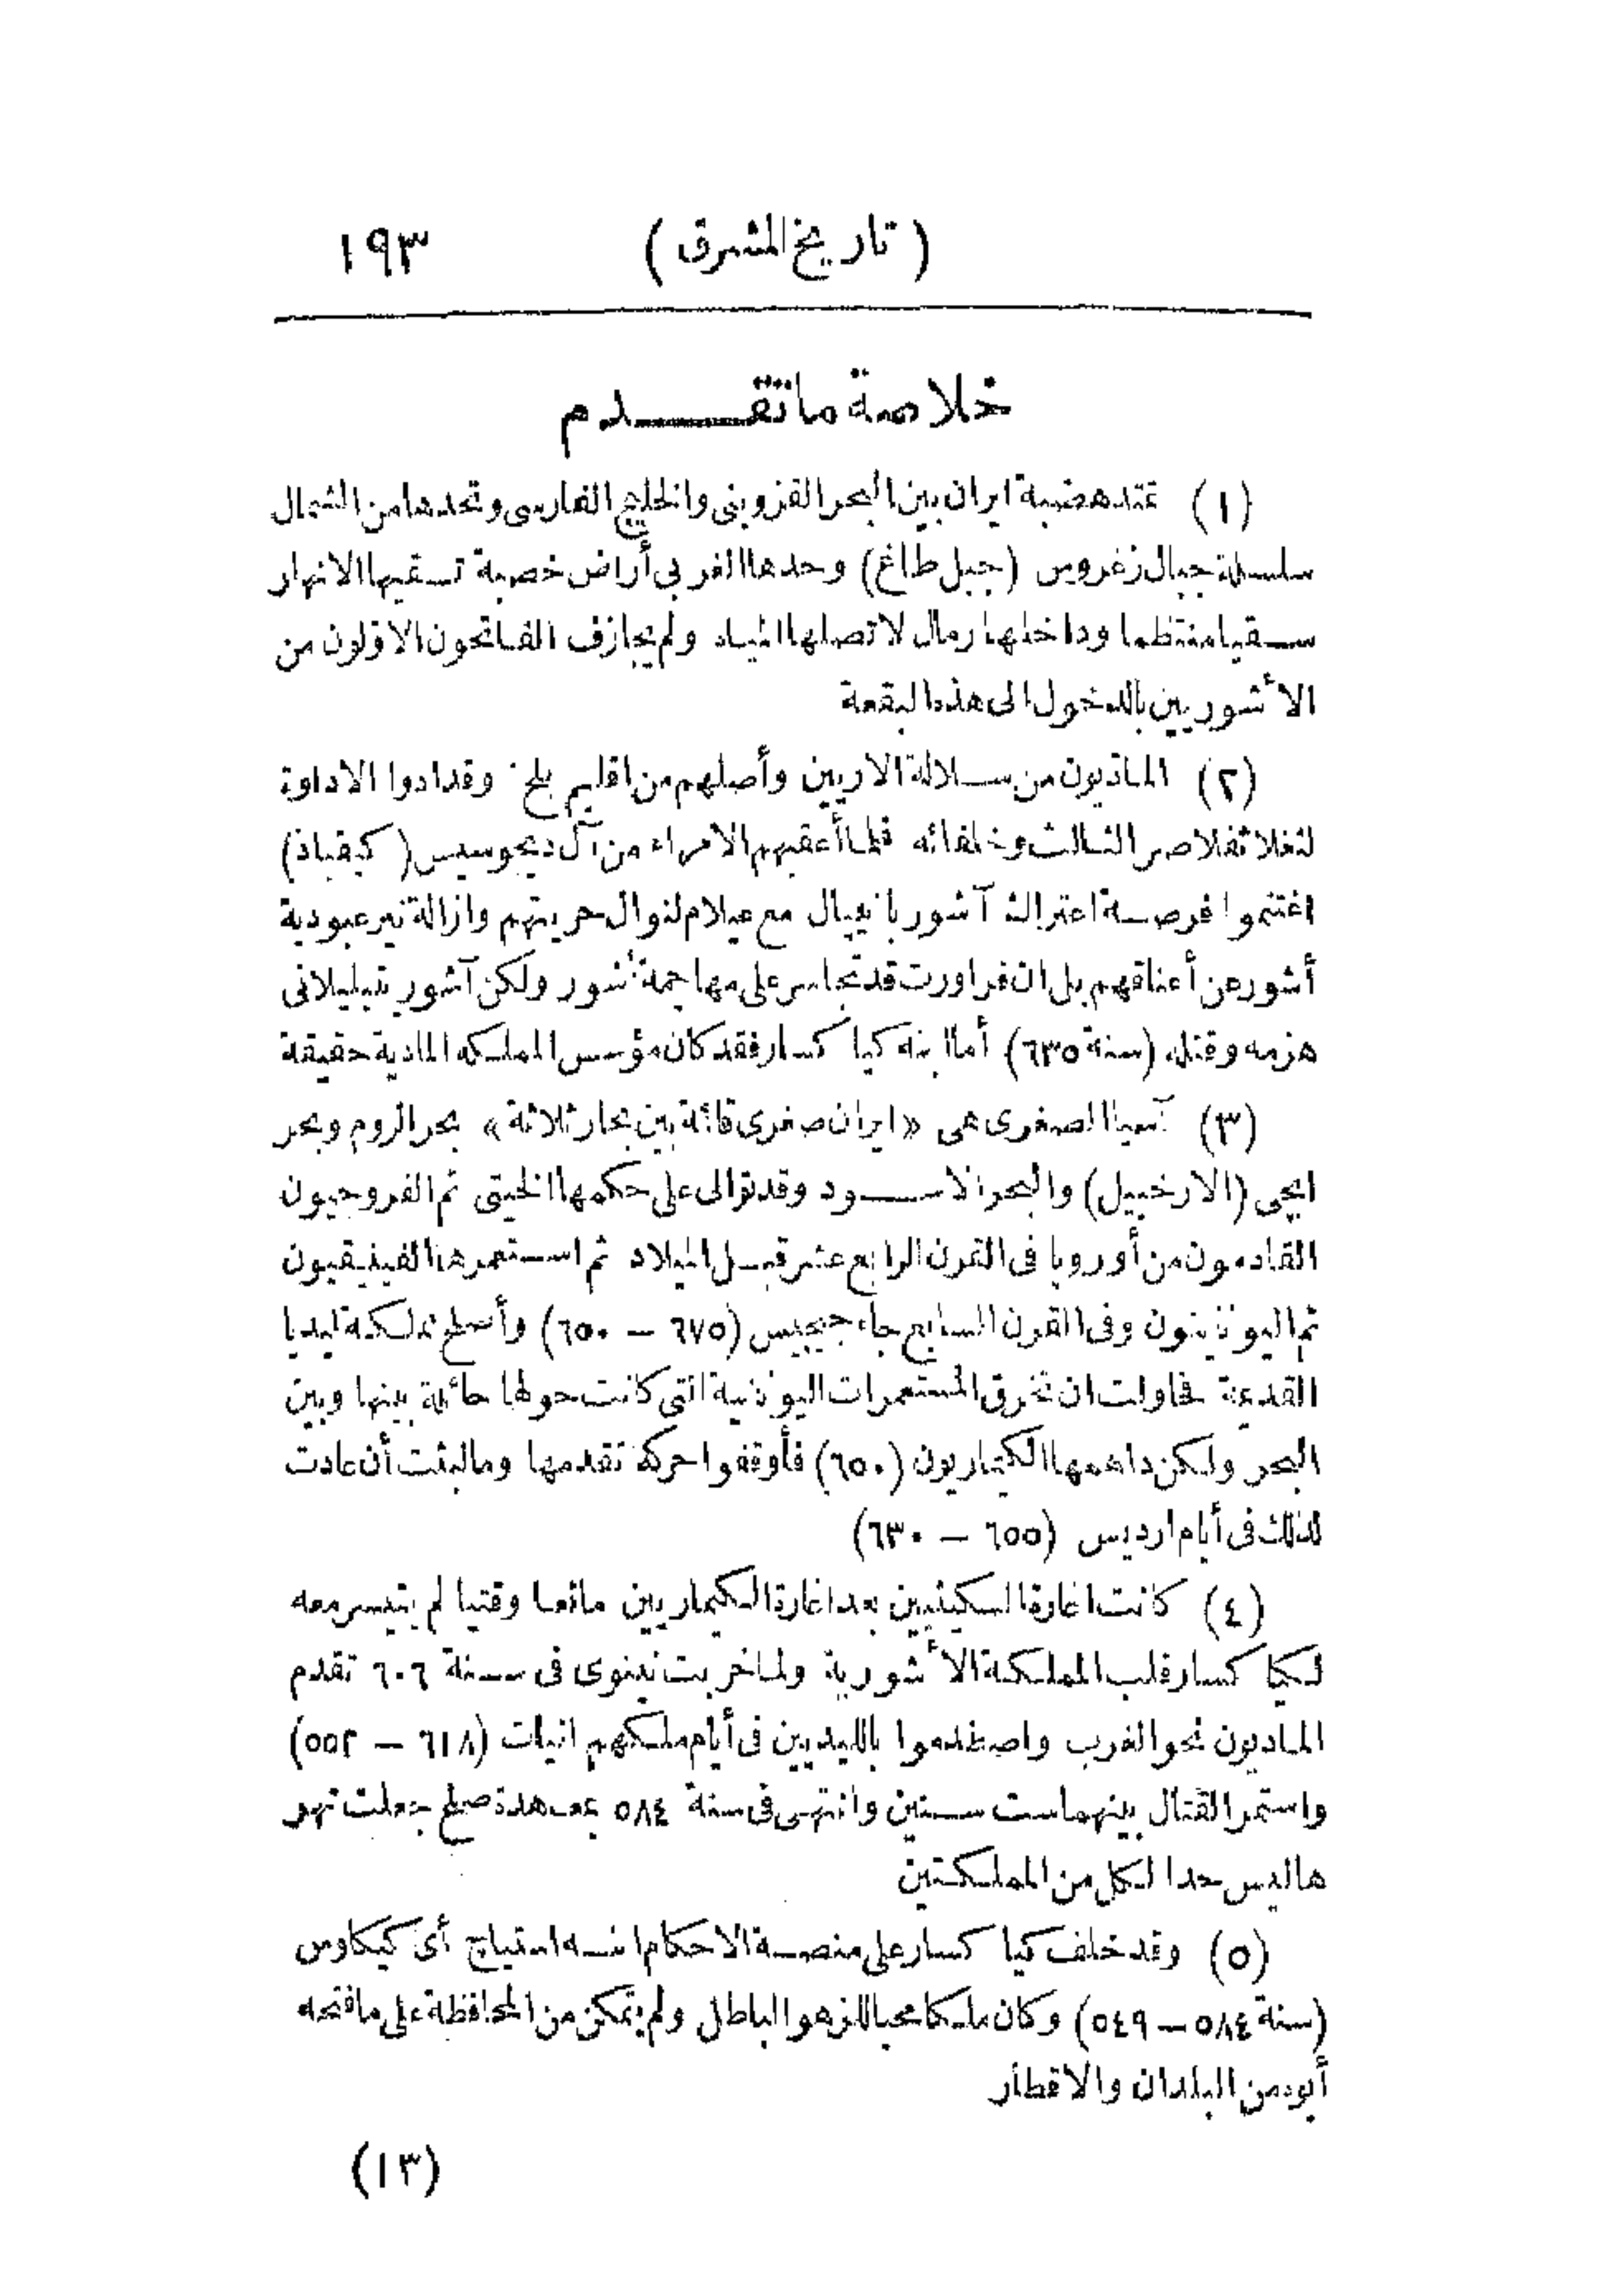 (تاريخ المشرق) ١٩٣
خلاصة ما تقدم
(١) تمتد هضبة ايران بين البحر القزوينى والخليج الفارسى وتحدها من الشمال
سلسلة جبال زغروس (جبل طاغ) وحدها الغربى أراض خصبة تسقيها الانهار
سقيا منتظما وداخلها رمال لا تصلها المياه ولم يجازف الفاتحون الاولون من
الأشوريين بالدخول الى هذه البقعة
(٢) الماديون من سلالة الاريين وأصلهم من اقليم بلخ وقد ادوا الاداوة
لتغلا ثفلاصر الثالث وخلفائه فلما أعقبهم الامراء من آل ديجوسيس (كيقباذ)
اغتنموا فرصة اعتراك آشور بانيبال مع عيلام لنوال حريتهم وازالة نير عبودية
أشور عن أعناقهم بل ان فراورت قد تجاسر على مهاجمة أشور ولكن آشور يتيليلانى
هزمه وقتله (سنة ٦٣٥) أما ابنه كيا كسار فقد كان مؤسس المملكه المادية حقيقة
(٣) آسيا الصغرى هى «ايران صغرى قائمة بين بحار ثلاثة» بحر الروم وبحر
ايجى (الارخبيل) والبحر الاسود وقد توالى على حكمها الخيتى ثم الفروجيون
القادمون من أوروبا فى القرن الرابع عشر قبل الميلاد ثم استعمرها الفينيقيون
ثم اليونانيون وفى القرن السابع جاء جيجيس (٦٧٥ – ٦٥٠) وأصلح مملكة ليديا
القديمة فحاولت ان تخرق المستعمرات اليونانية التى كانت حولها حائلة بينها وبين
البحر ولكن داهمها الكيماريون (٦٥٠) فأوقفوا حركة تقدمها وما لبثت أن عادت
لذلك فى أيام ارديس (٦٥٥ – ٦٣٠)
(٤) كانت اغارة السكيثيين بعد اغارة الكيماريين مانعا وقتيا لم يتيسر معه
لكيا كسار قلب المملكة الأشورية ولما خربت نينوى فى سنة ٦٠٦ تقدم
الماديون نحو الغرب واصطدموا بالليديين فى أيام ملكهم اليات (٦١٨ – ٥٥٢)
واستمر القتال بينهما ست سنين وانتهى فى سنة ٥٨٤ بمعاهدة صلح جعلت نهر
هاليس حدا لكل من المملكتين
(٥) وقد خلف كيا كسار على منصة الاحكام ابنه استياج أى كيكاوس
(سنة ٥٨٤ – ٥٤٩) وكان ملكا محبا للزهو الباطل ولم يتمكن من المحافظة على ما فتحه
أبوه من البلدان والاقطار
(١٣)